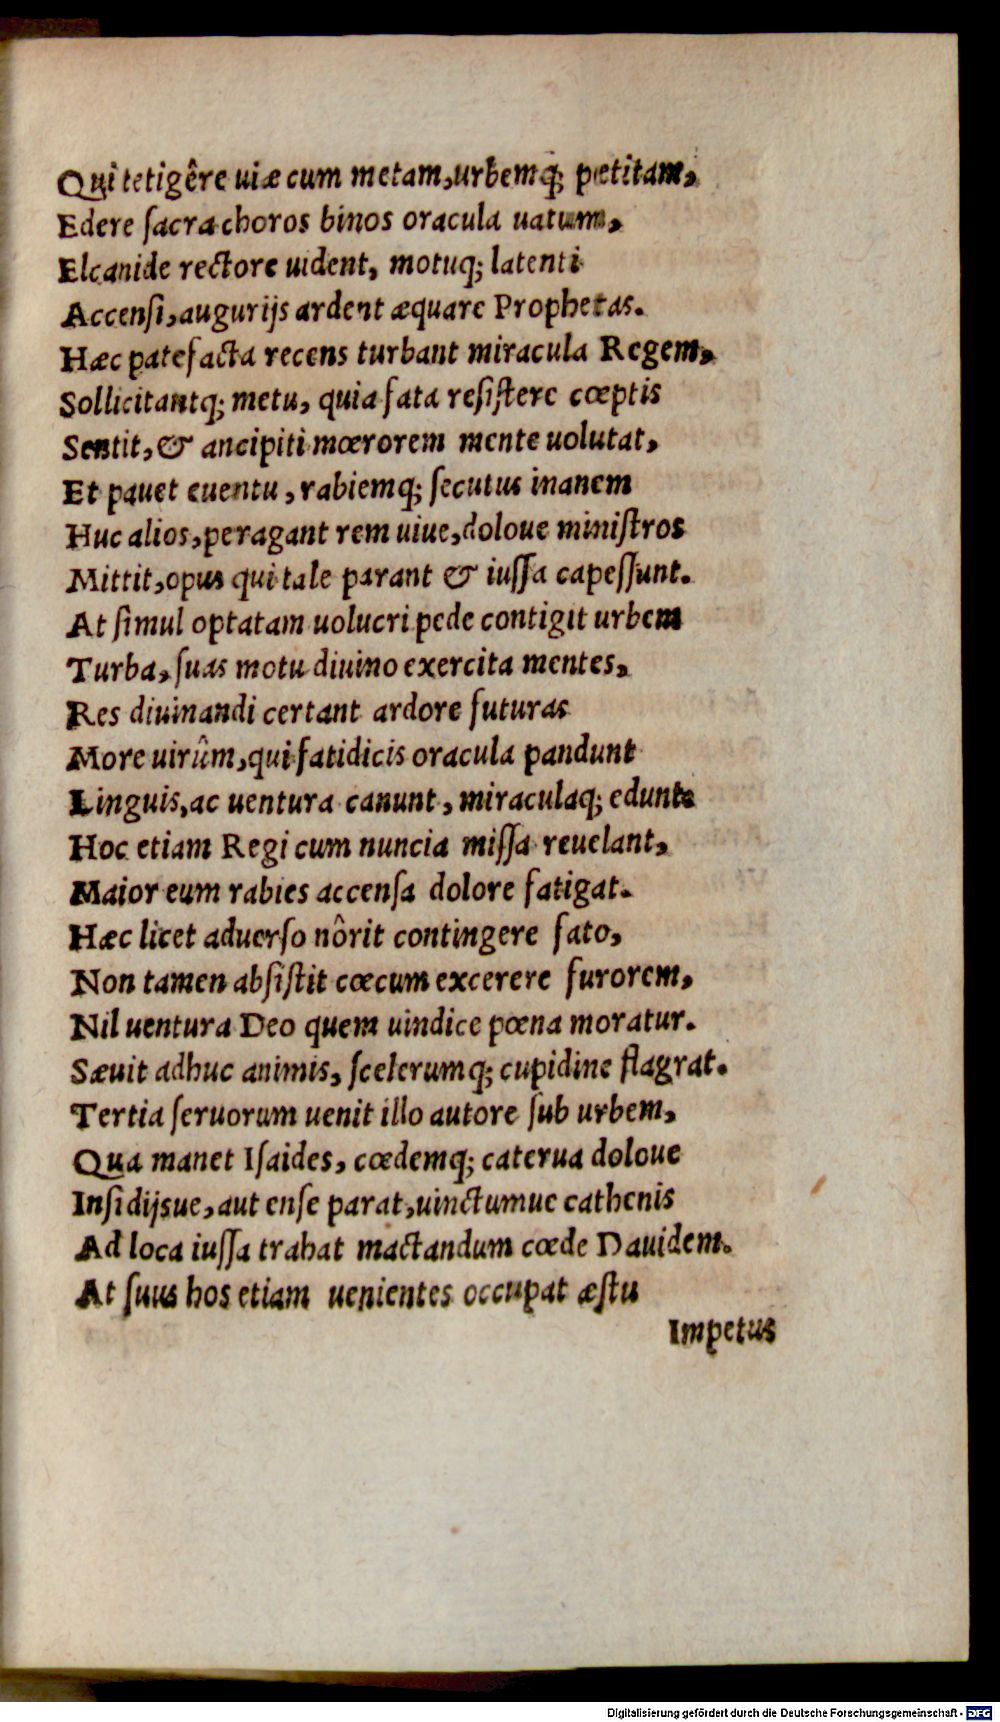 Qui tetigêre uiæ cum metam, urbemq́; petitam,
Edere ſacra choros binos oracula uatum,
Elcanide rectore uident, motuq; latenti
Accenſi, augurijs ardent æquare Prophetas.
Hæc patefacta recens turbant miracula Regem,
Sollicitantq; metu, quia fata reſiſtere cœptis
Sentit, & ancipiti mœrorem mente uolutat,
Et pauet euentu, rabiemq; ſecutus inanem
Huc alios, peragant rem uiue, doloue miniſtros
Mittit, opus qui tale parant & iuſſa capeſſunt.
At ſimul optatam uolucri pede contigit urbem
Turba, ſuas motu diuino exercita mentes,
Res diuinandi certant ardore futuras
More uirûm, qui fatidicis oracula pandunt
Linguis, ac uentura canunt, miraculaq; edunt.
Hoc etiam Regi cum nuncia miſſa reuelant,
Maior eum rabies accenſa dolore fatigat.
Hæc licet aduerſo nôrit contingere fato,
Non tamen abſiſtit cœcum excerere furorem,
Nil uentura Deo quem uindice pœna moratur.
Sæuit adhuc animis, ſcelerumq; cupidine flagrat.
Tertia ſeruorum uenit illo autore ſub urbem,
Qua manet Iſaides, cœdemq; caterua doloue
Inſidijsue, aut enſe parat, uinctumue cathenis
Ad loca iuſſa trahat mactandum cœde Dauidem.
At ſuus hos etiam uenientes occupat æſtu
Impetus
Digitalisierung gefördert durch die Deutsche Forschungsgemeinschaft - DFG